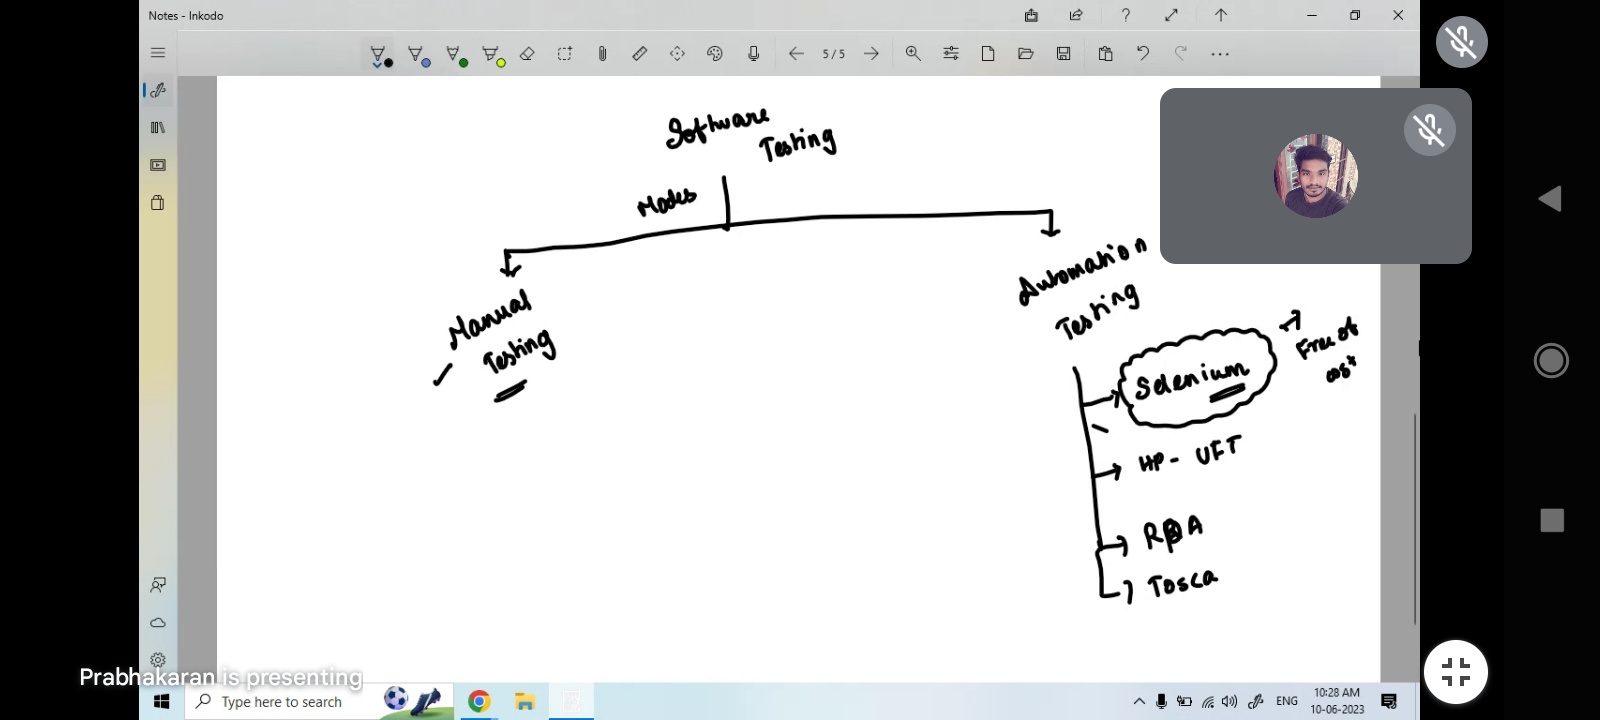 Notes - Inkodo
5 / 5
Software
Testing
Modes
Automation
Testing
Manual
Testing
Selenium
Free of
cost
HP - UFT
RPA
Tosca
Prabhakaran is presenting
Type here to search
ENG
10:28 AM
10-06-2023